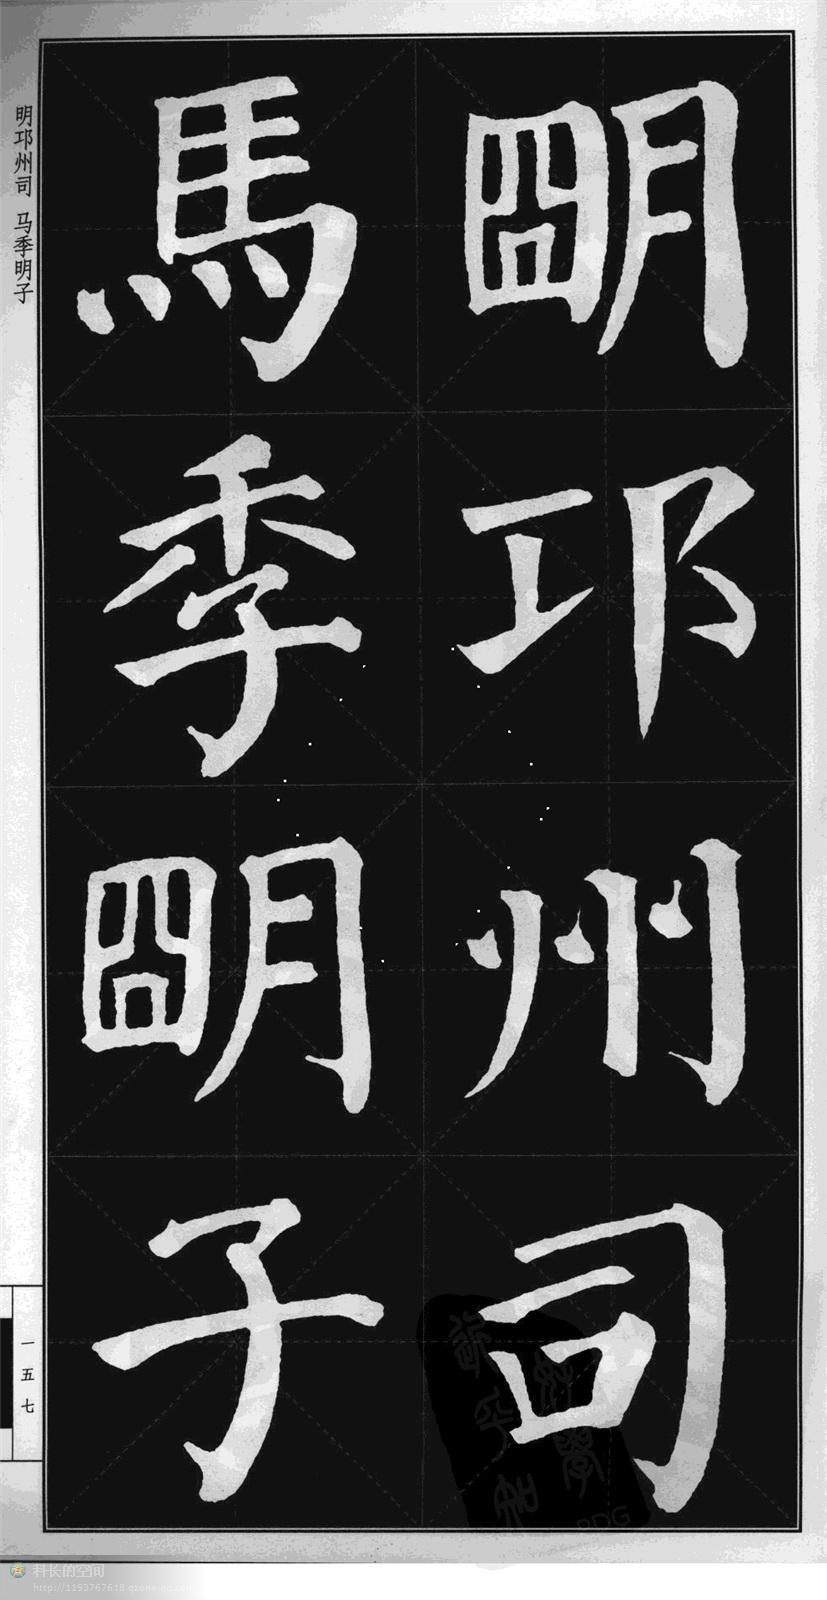 朙邛州司
馬季朙子
明邛州司 马季明子
一五七
科长的空间
http://1193767618.qzone.qq.com